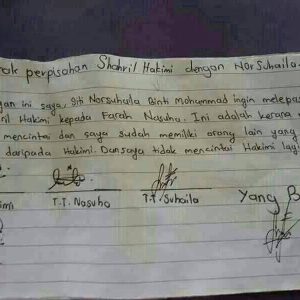 perpisahan Shahril Hakimi dengan Norsuhaila
ini saya, Siti Norsuhaila Binti Mohammad ingin melepas
Hakimi kepada Farah Nasuha. Ini adalah kerana
mencintai dan saya sudah memiliki orang lain yang
daripada Hakimi. Dan saya tidak mencintai Hakimi lagi
T.T. Nasuha T.T. Suhaila Yang B